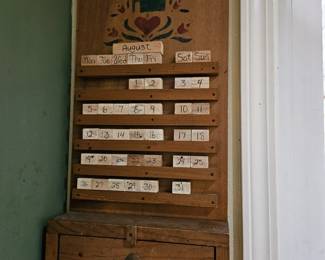 August
Mon Tue Wed Thu Fri Sat Sun
1 2 3 4
5 6 7 8 9 10 11
12 13 14 15 16 17 18
19 20 22 23 24 25
26 27 28 29 30 31